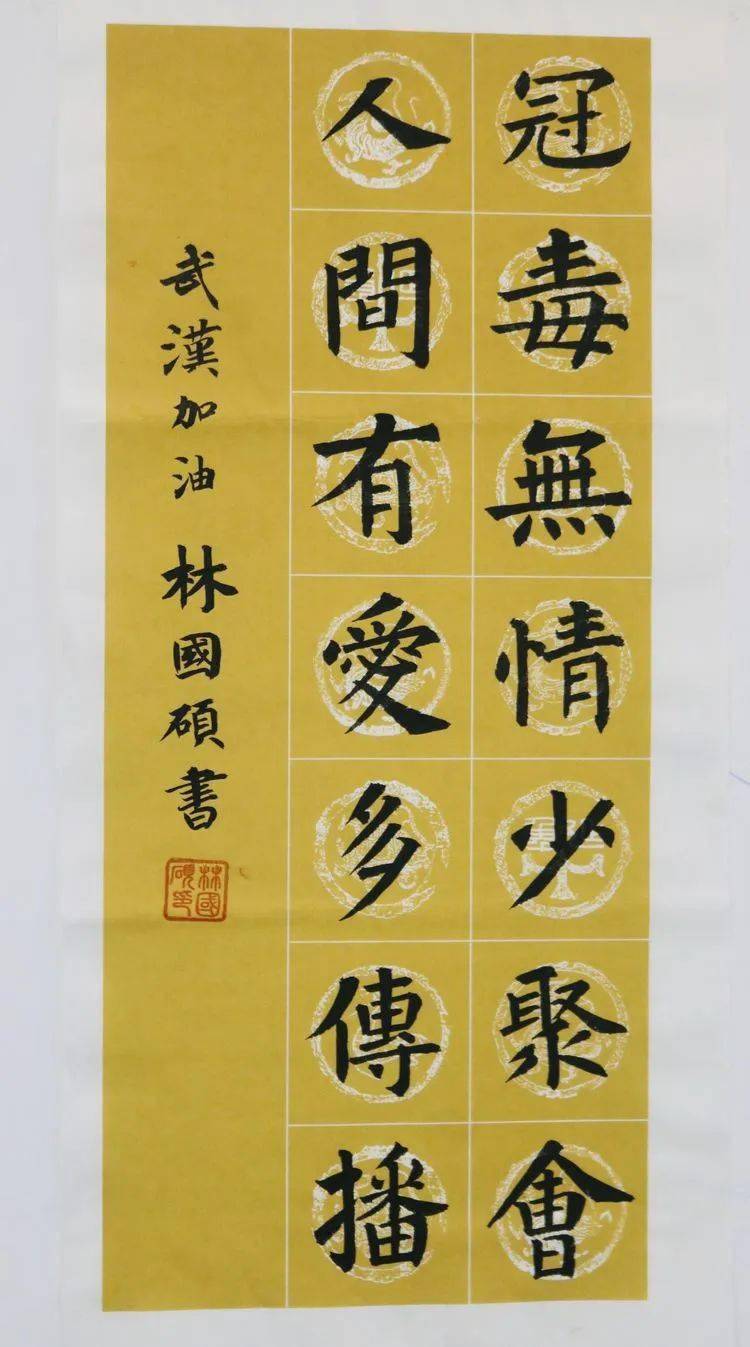 冠毒無情少聚會
人間有愛多傳播
武漢加油 林國碩書
林國碩印